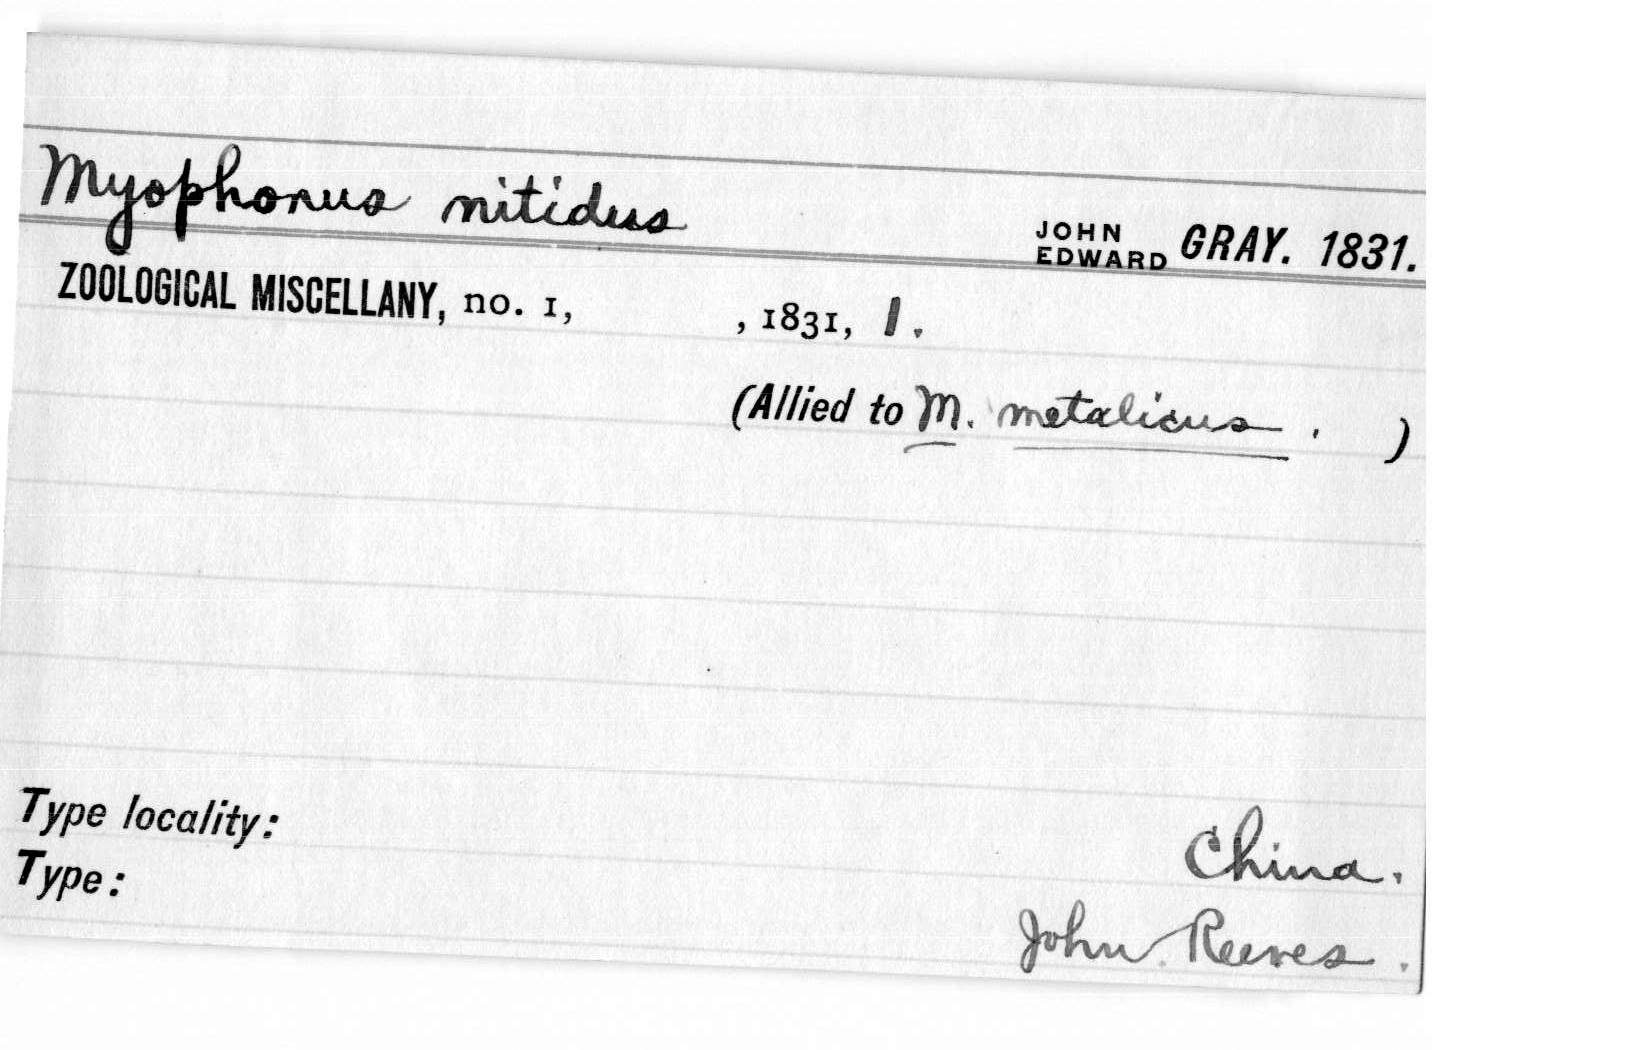 Myophonus nitidus
JOHN EDWARD GRAY. 1831.
ZOOLOGICAL MISCELLANY, no. 1, , 1831, 1.
(Allied to M. metalicus. )
Type locality: China.
Type: John Reeves.